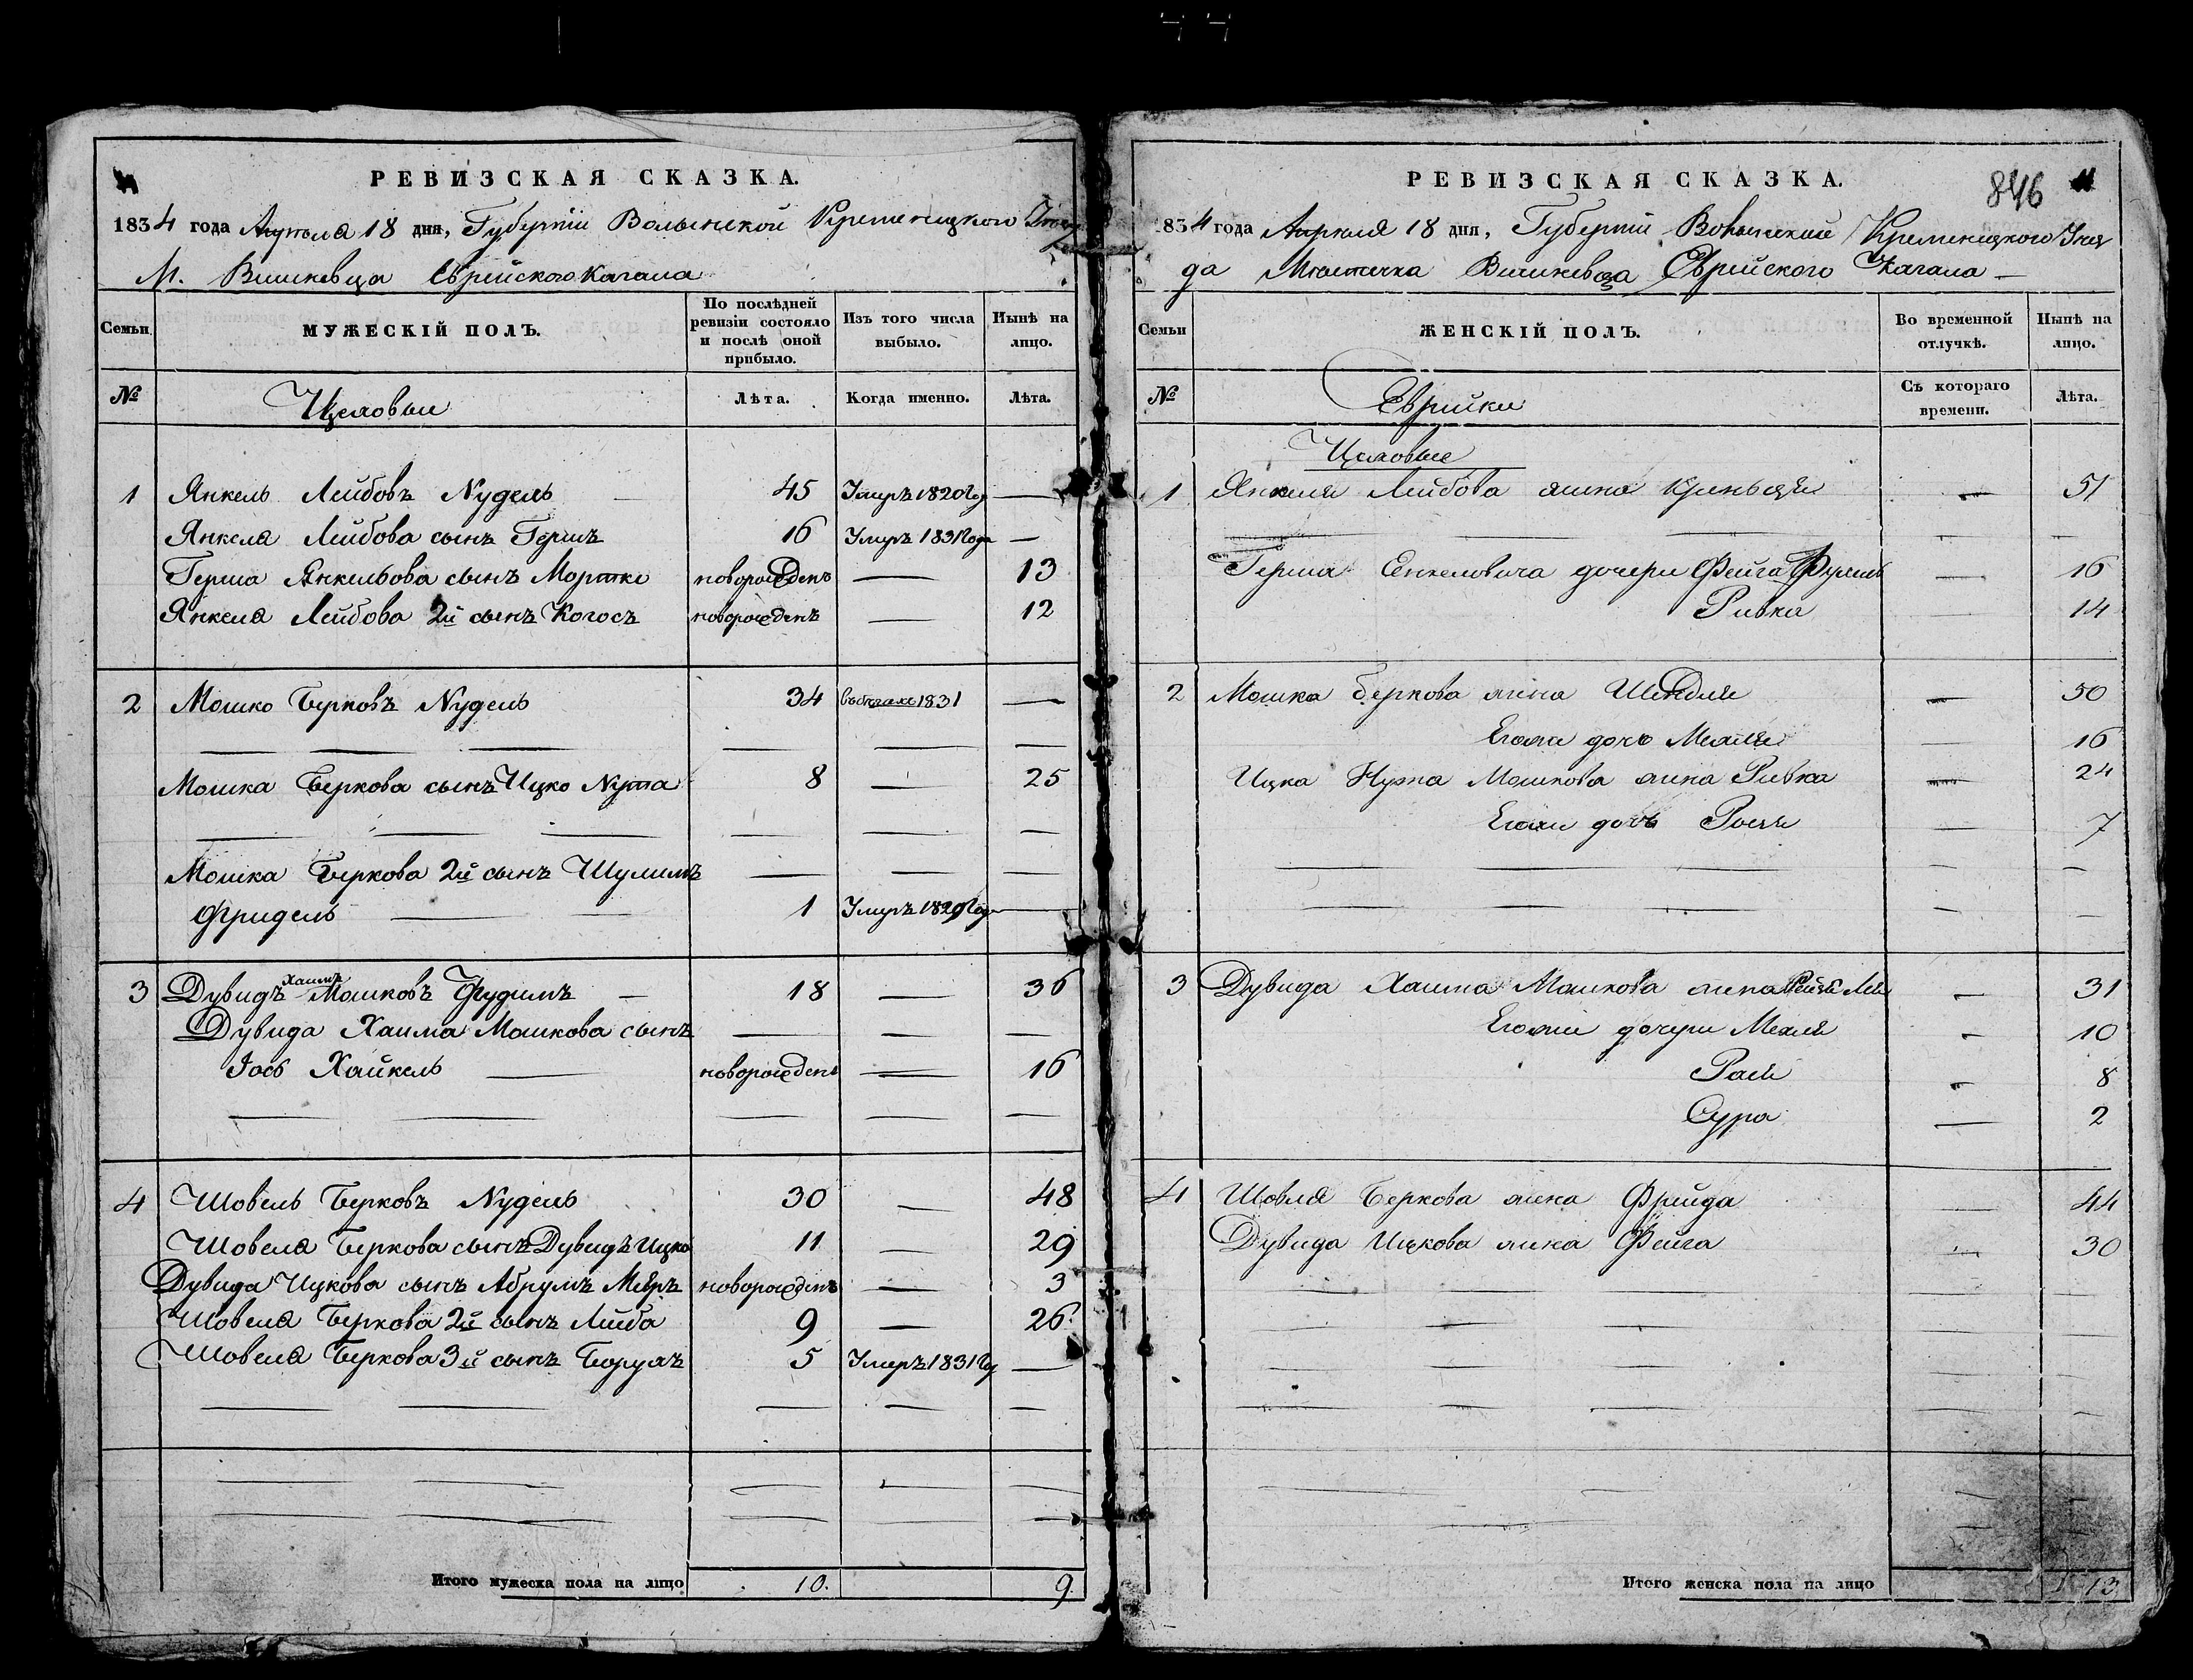 РЕВИЗСКАЯ СКАЗКА.
1834 года Апреля 18 дня, Губернiи Волынской Кременецкого Уезда
М. Вишневца Еврейского Кагала
Семьи.
МУЖЕСКIЙ ПОЛЪ.
По послѣдней ревизiи состояло и послѣ оной прибыло.
Изъ того числа выбыло.
Нынѣ на лицо.
№
Цеховые
Лѣта.
Когда именно.
Лѣта.
1 Янкель Лейбовъ Nудель 45 Умеръ 1820 Год —
Янкеля Лейбова сынъ Гершъ 16 Умеръ 1831 Года —
Герша Янкельова сынъ Мортко новорожденъ — 13
Янкеля Лейбова 2й сынъ Когосъ новорожденъ — 12
2 Мошко Берковъ Nудель 34 въ бегахъ 1831 —
Мошка Беркова сынъ Ицко Nута 8 — 25
Мошка Беркова 2й сынъ Шулимъ
Фридель 1 Умеръ 1829 Года —
3 Дувидъ Хаимъ Мошковъ Фудимъ 18 — 36
Дувида Хаима Мошкова сынъ
Iось Хайкель новорожденъ — 16
4 Шовель Берковъ Nудель 30 — 48
Шовеля Беркова сынъ Дувидъ Ицко 11 — 29
Дувида Ицкова сынъ Абрумъ Мееръ новорожденъ — 3
Шовеля Беркова 2й сынъ Лейба 9 — 26
Шовеля Беркова 3й сынъ Борухъ 5 Умеръ 1831 Го —
Итого мужеска пола на лицо 10. 9
РЕВИЗСКАЯ СКАЗКА.
846
1834 года Апреля 18 дня, Губернiи Волынской Кременецкого Уез
да Местечка Вишневца Еврейского Кагала —
Семьи
ЖЕНСКIЙ ПОЛЪ.
Во временной отлучкѣ.
Нынѣ на лицо.
№
Еврейки
Съ котораго времени.
Лѣта.
Цеховые
1 Янкеля Лейбова жена — 51
Герша Енкеловича дочери Фейга — 16
Ривка — 14
2 Мошка Беркова жена Шендля — 50
Егожъ дочь — 16
Ицка Нута Мошкова жена Ривка — 24
Егожъ дочь — 7
3 Дувида Хаима Мошкова жена — 31
Егожъ дочери — 10
— 8
Сура — 2
4 Шовля Беркова жена Фрейда — 44
Дувида Ицкова жена Фейга — 30
Итого женска пола на лицо 13